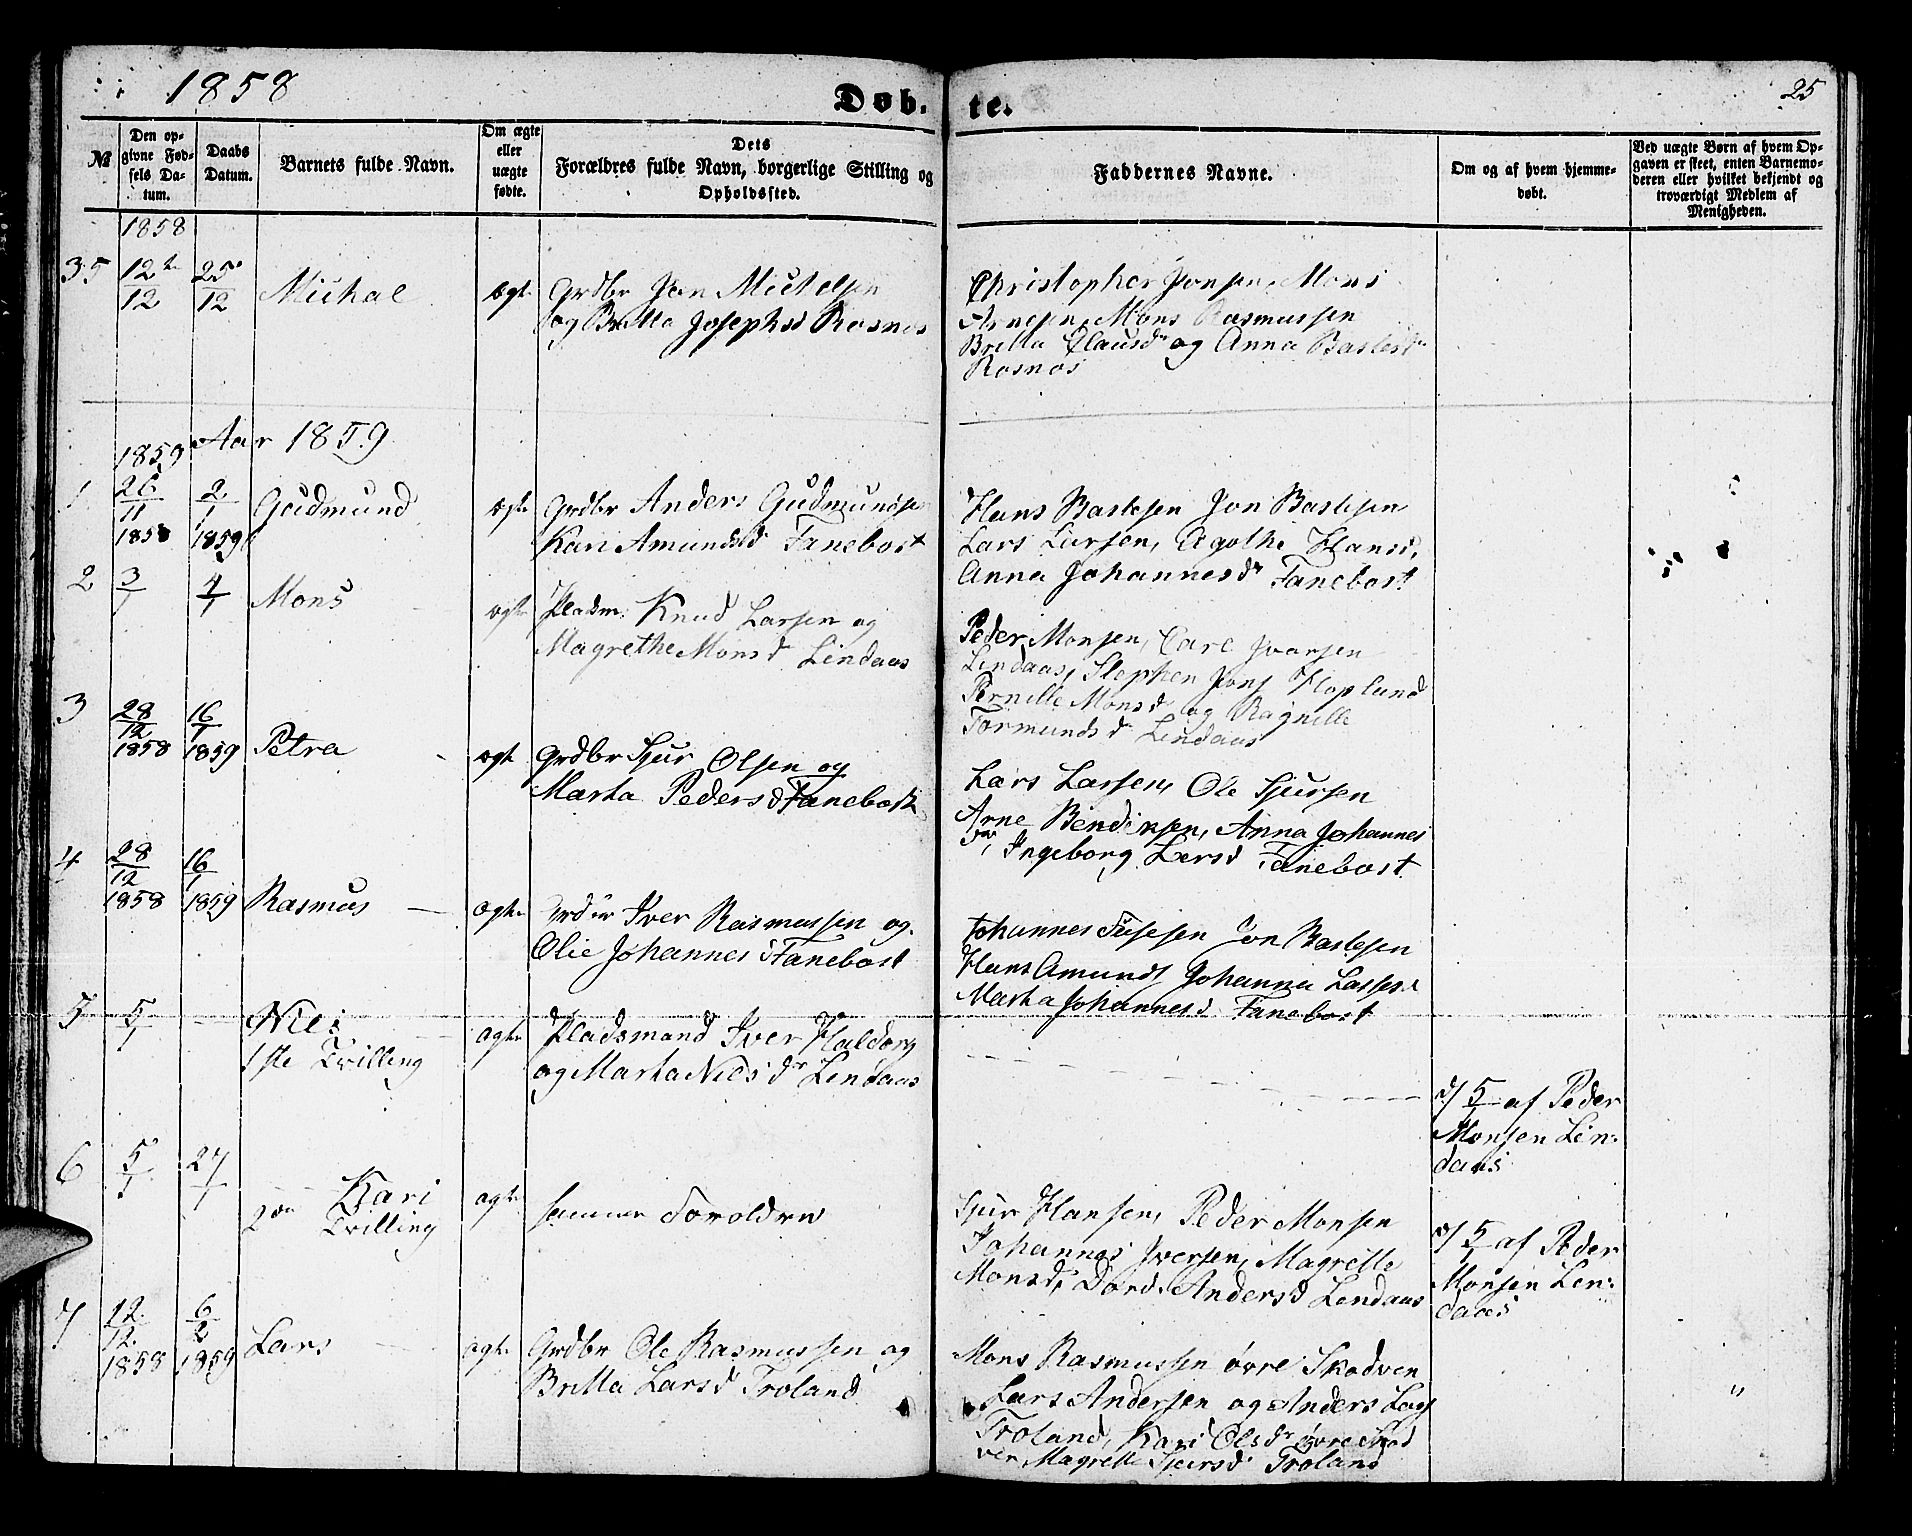 1858 Døb- te. 25
№
Den opgivne Fødsels Datum.
Daabs Datum.
Barnets fulde Navn.
Om ægte eller uægte fødte.
Dets Forældres fulde Navn, borgerlige Stilling og Opholdssted.
Faddernes Navne.
Om og af hvem hjemmedøbt.
Ved uægte Børn af hvem Opgaven er skeet, enten Barnemoderen eller hvilket bekjendt og troværdigt Medlem af Menigheden.
1858
35 12/12 25/12 Michal ægte Grdbr Jon Michelsen
og Britta Josephsd Rosnos
Christopher Jonsen, Mons
Arnesen, Mons Rasmussen
Britta Clausdr og Anna Bastesdr
Rosnos
Aar 1859
1859
1 26/11 1858 2/1 1859 Gudmund ægte Grdbr Anders Gudmundsen
Kari Amundsd Fanebost
Hans Bastesen Jon Bastesen
Lars Larsen, Agothe Hansd,
Anna Johannesdr Fanebost
2 3/1 4/1 Mons ægte Pladsm. Knud Larsen og
Magrethe Monsd Lindaas
Peder Monsen, Carl Ivarsen
Lindaas, Stephen Jons Hoplund
Pernille Monsd og Ragnille
Tormundsd Lindaas
3 28/12 1858 16/1 1859 Petra ægte Grdbr Sjur Olsen og
Marta Pedersd Fanebost
Lars Larsen, Ole Sjursen
Arne Bendixsen, Anna Johannes
dr, Ingeborg Larsd Fanebost
4 28/12 1858 16/1 1859 Rasmus ægte Grdbr Iver Rasmussen og
Olie Johannesd Fanebost
Johannes Jon Bastesen
Hans Amunds Johanna Lassesd
Marta Johannesd Fanebost
5 5/1 - Niels
1ste Tvilling
ægte Pladsmand Iver Haldors
og Marta Nielsdr Lindaas
d/ 5/1 af Peder
Monsen Lin-
daas
6 5/1 27/1 2den Kari
Tvilling
ægte samme Foroldre
Sjur Hansen, Peder Monsen
Johannes Iversen, Magrette
Monsd, Dord. Andersd Lindaas
d/ 5/1 af Peder
Monsen Lin-
daas
7 12/12 1858 6/2 1859 Lars ægte Grdbr Ole Rasmussen og
Britta Larsd Troland
Mons Rasmussen øvre Skodven
Lars Andersen og Anders Lars
Troland, Kari Olsdr øvre Skod
ven Magrette Sjursd Troland
"